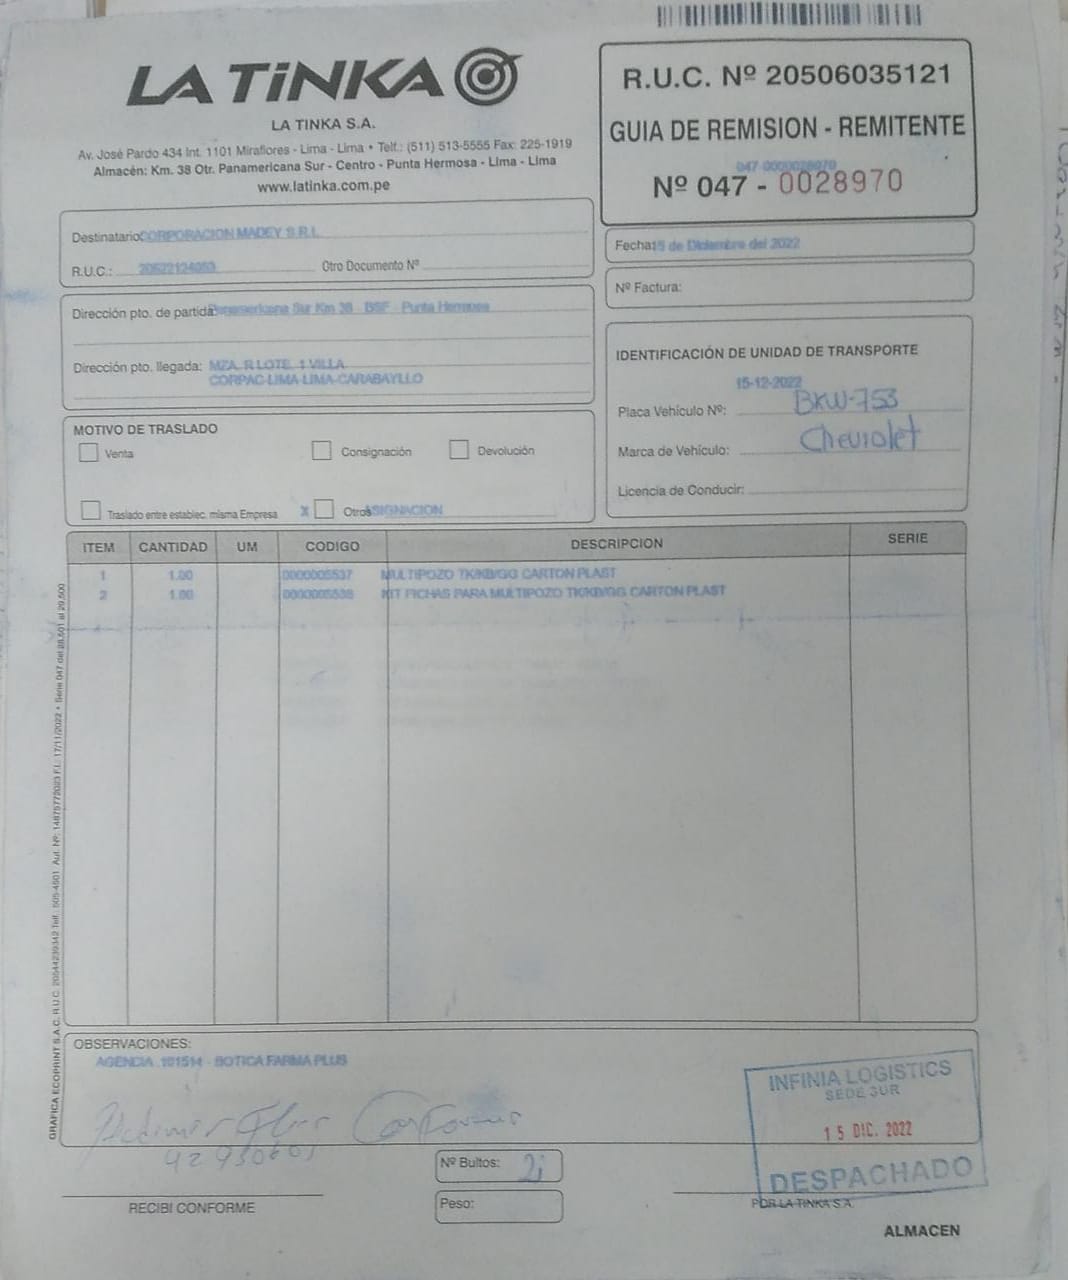 LA TiNKA
LA TINKA S.A.
Av. José Pardo 434 Int. 1101 Miraflores - Lima - Lima • Telf.: (511) 513-5555 Fax: 225-1919
Almacén: Km. 38 Otr. Panamericana Sur - Centro - Punta Hermosa - Lima - Lima
www.latinka.com.pe
R.U.C. Nº 20506035121
GUIA DE REMISION - REMITENTE
047-0000028970
Nº 047 - 0028970
Destinatario: CORPORACION MADEY S.R.L.
R.U.C.: Otro Documento Nº
Fecha: 15 de Diciembre del 2022
Nº Factura:
Dirección pto. de partida: Panamericana Sur Km 38 - BSF - Punta Hermosa
Dirección pto. llegada: MZA. R LOTE. 1 VILLA
CORPAC-LIMA-LIMA-CARABAYLLO
IDENTIFICACIÓN DE UNIDAD DE TRANSPORTE
15-12-2022
Placa Vehículo Nº: BKW-753
Marca de Vehículo: Chevrolet
Licencia de Conducir:
MOTIVO DE TRASLADO
Venta Consignación Devolución
Traslado entre establec. misma Empresa X Otros ASIGNACION
ITEM CANTIDAD UM CODIGO DESCRIPCION SERIE
1 1.00 0000005537 MULTIPOZO TK/KB/GG CARTON PLAST
2 1.00 0000005538 KIT FICHAS PARA MULTIPOZO TK/KB/GG CARTON PLAST
GRAFICA ECOPRINT S.A.C. R.U.C. 20544239342 Telf.: 505-4501 Aut. Nº: 14875772023 F.I.: 17/11/2022 • Serie 047 del 28,501 al 29,500
OBSERVACIONES:
AGENCIA 101514 - BOTICA FARMA PLUS
Conforme
INFINIA LOGISTICS
SEDE SUR
15 DIC. 2022
DESPACHADO
Nº Bultos: 2
Peso:
RECIBI CONFORME
POR LA TINKA S.A.
ALMACEN